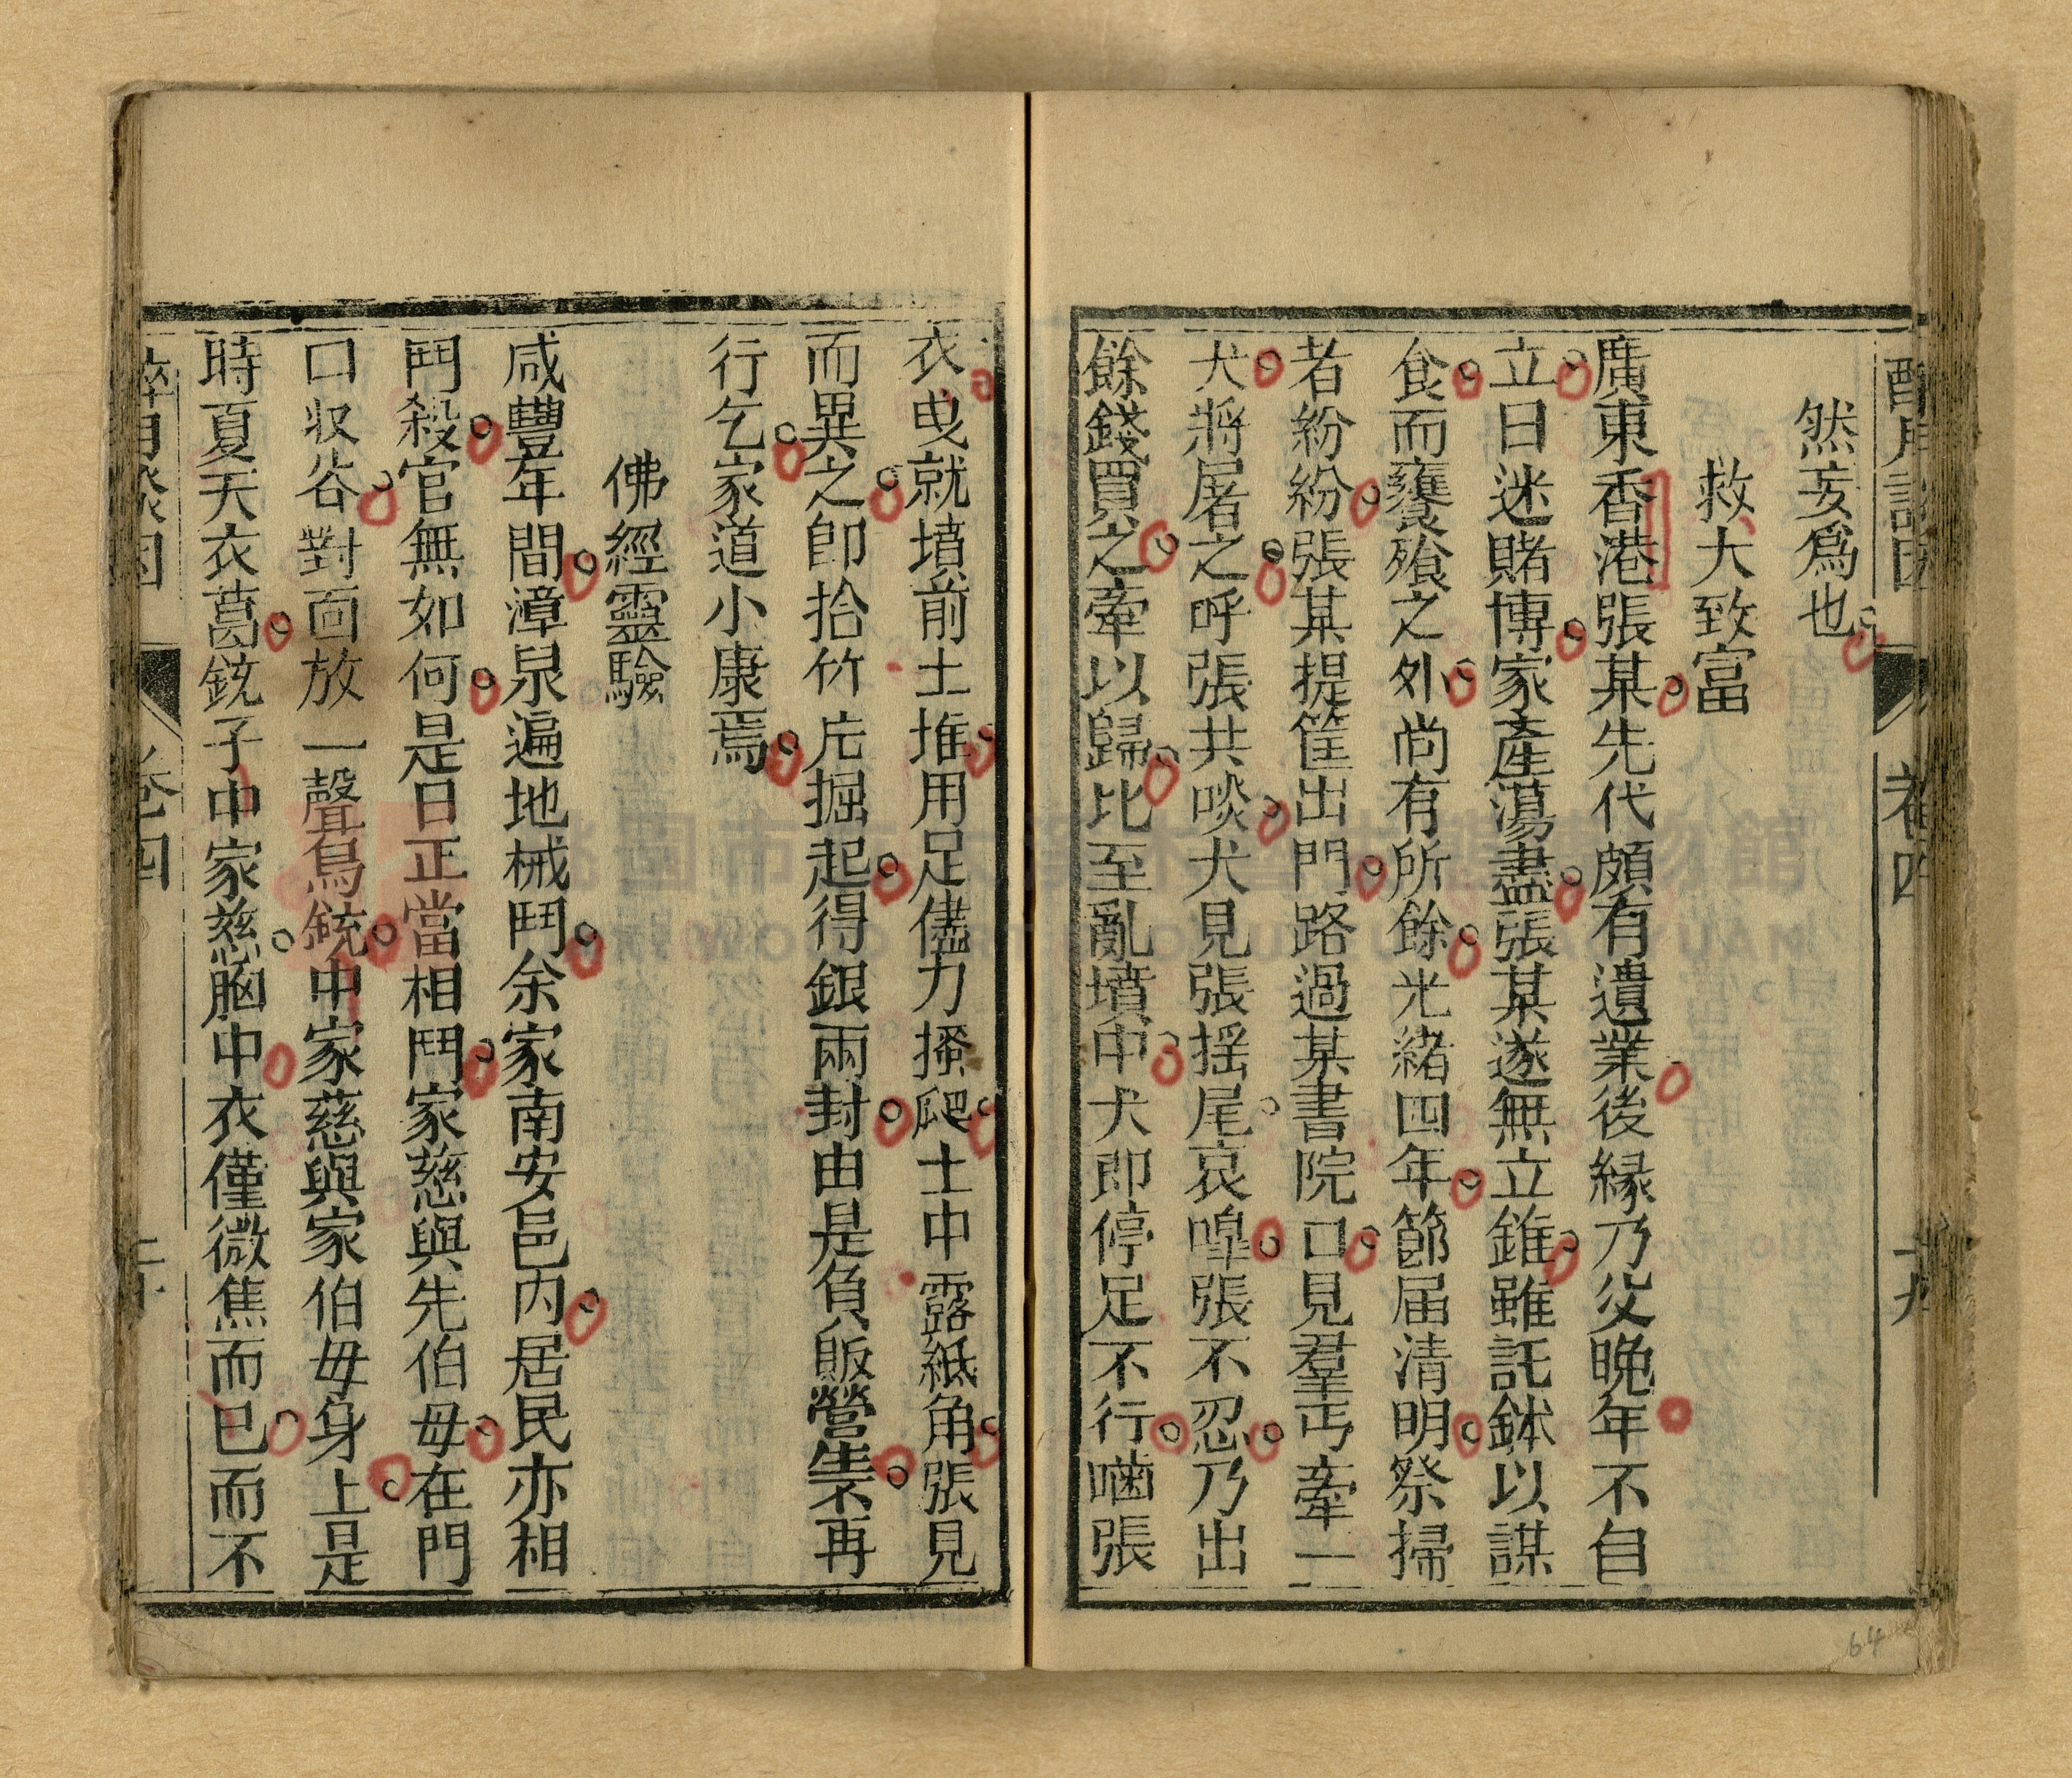 然妄爲也
救犬致富
廣東香港張某先代頗有遺業後緣乃父晚年不自
立日迷賭博家產蕩盡張某遂無立錐雖託鉢以謀
食而饔飱之外尚有所餘光緒四年節届清明祭掃
者紛紛張某提筐出門路過某書院口見羣丐牽一
犬將屠之呼張共啖犬見張揺尾哀嘷張不忍乃出
餘錢買之牽以歸比至亂墳中犬即停足不行嚙張
衣曳就墳前土堆用足儘力搔爬土中露紙角張見
而異之卽拾竹片掘起得銀兩封由是負販營生不再
行乞家道小康焉
佛經靈驗
咸豐年間漳泉遍地械鬥余家南安邑内居民亦相
鬥殺官無如何是日正當相鬥家慈與先伯母在門
口収谷對面放一聲鳥銃中家慈與家伯毋身上是
時夏天衣葛銃子中家慈胸中衣僅微焦而已而不
卷四